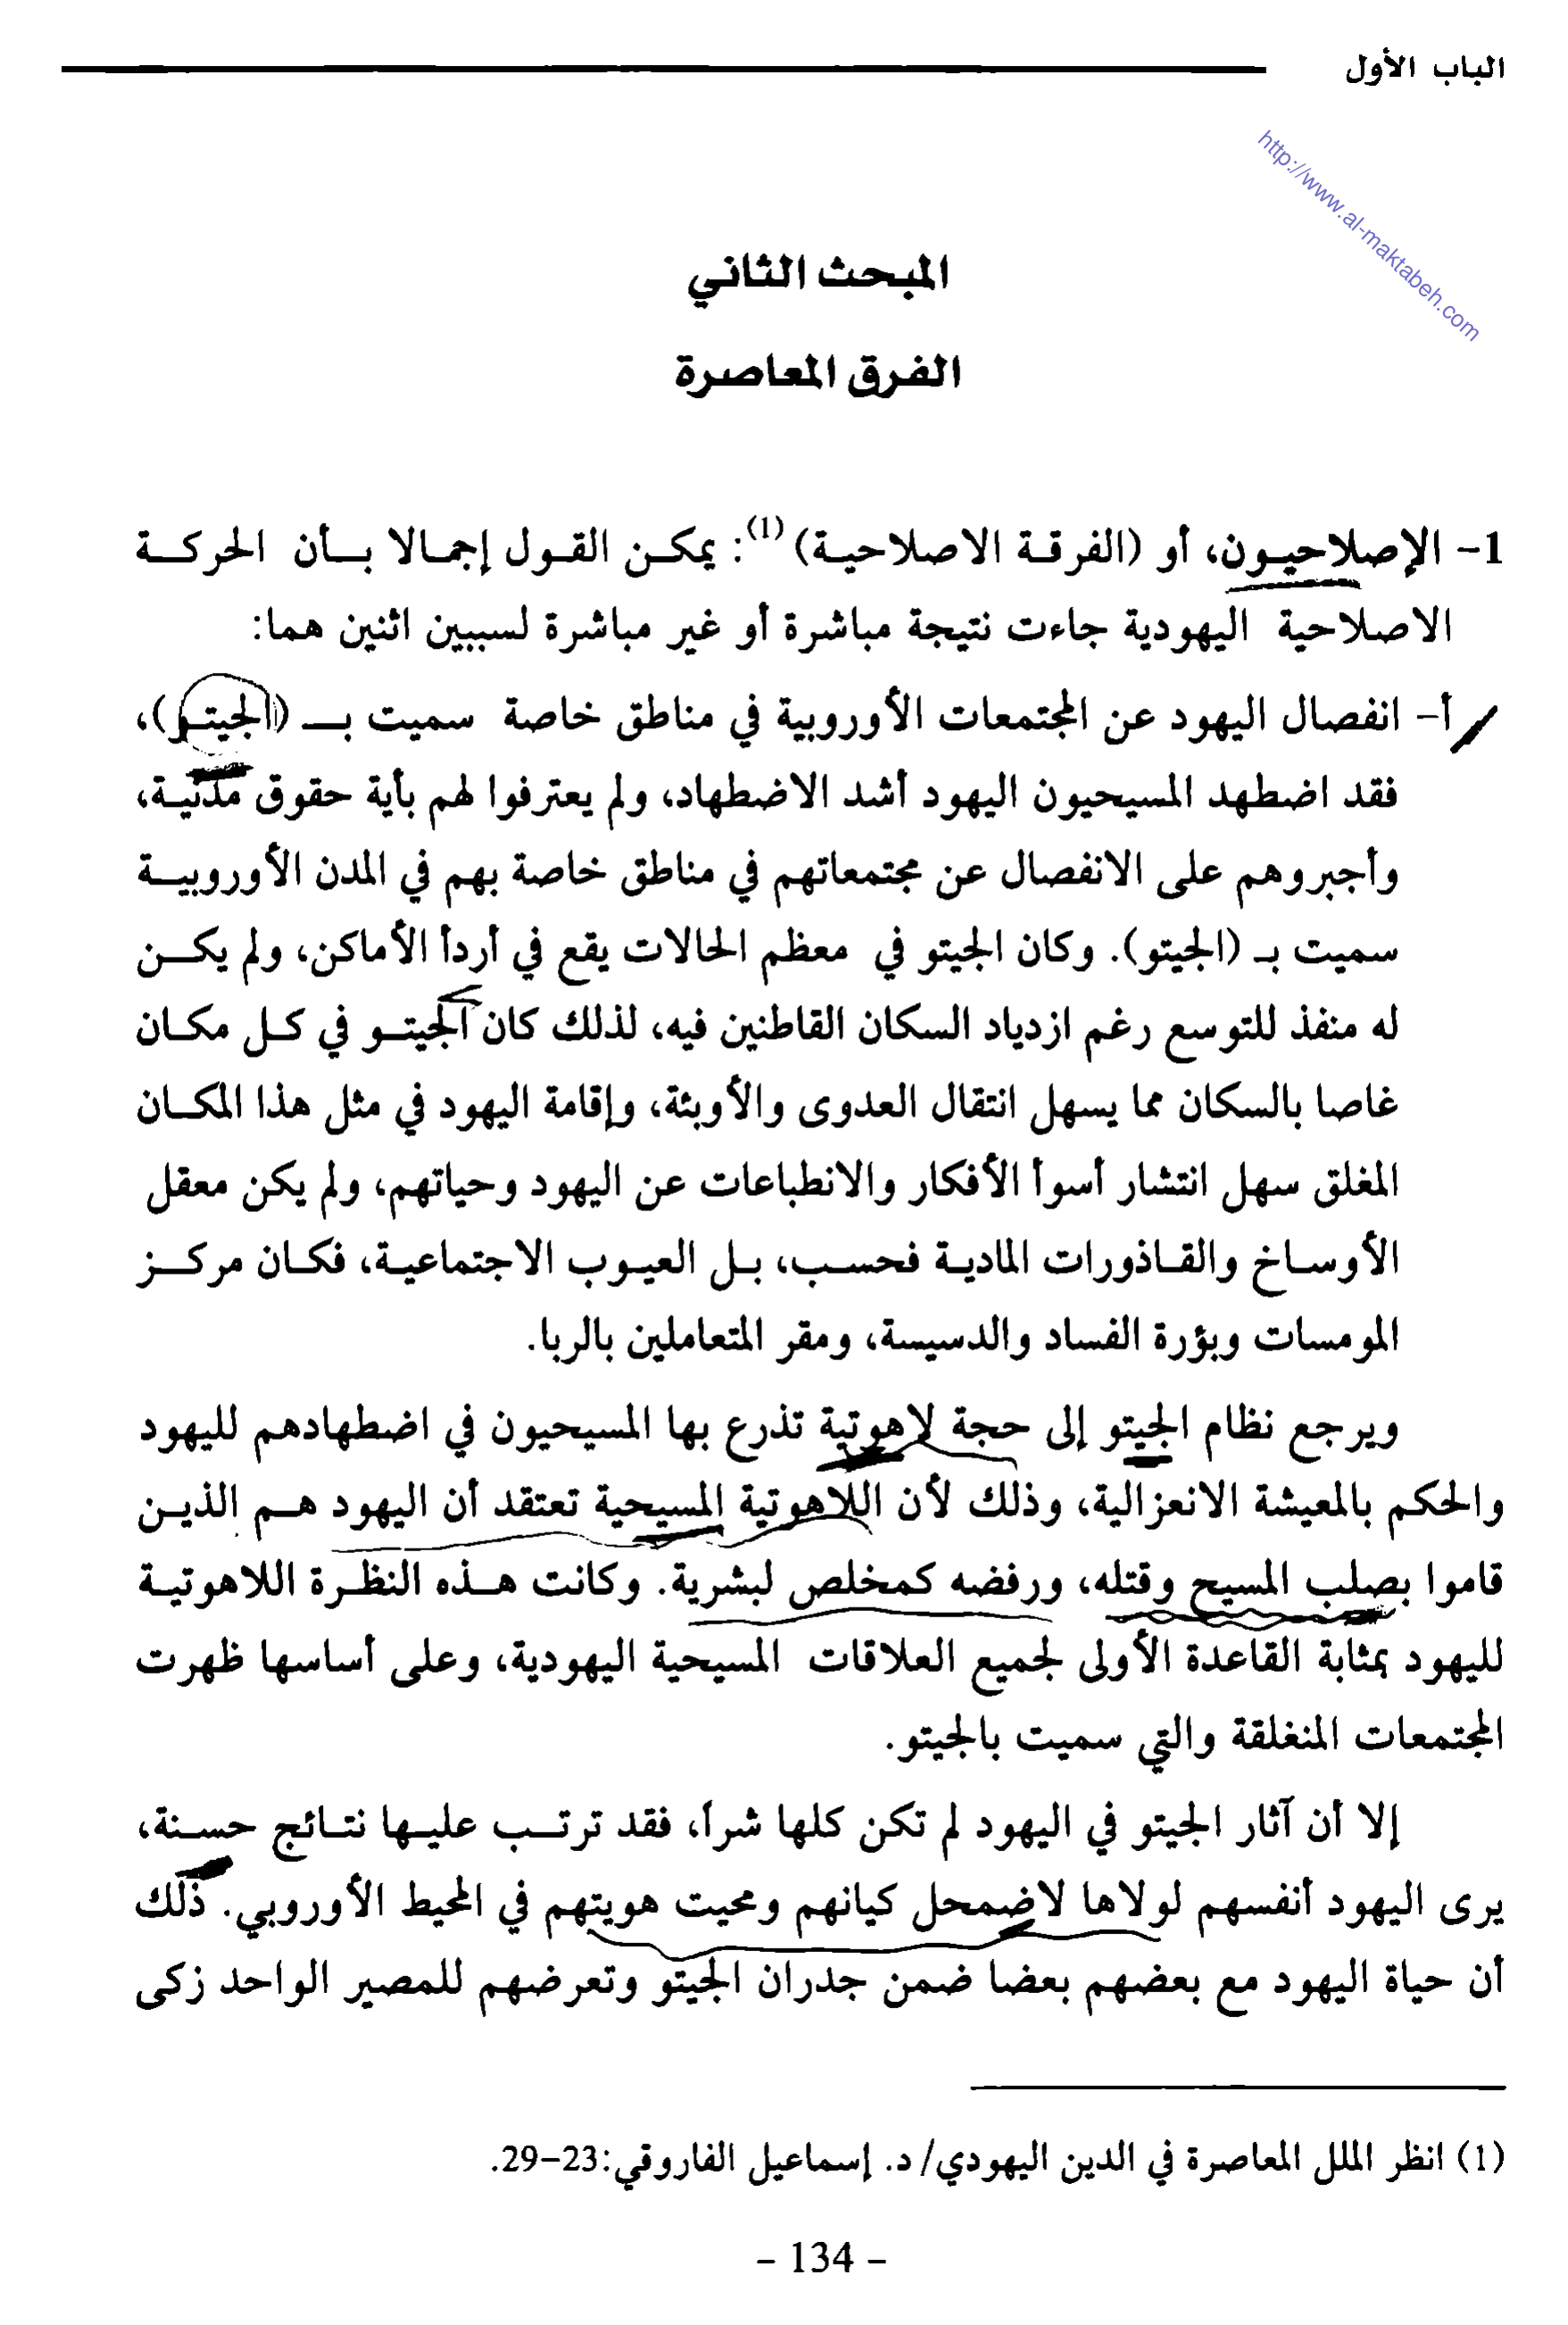 الباب الأول
http://www.al-maktabeh.com
المبحث الثاني
الفرق المعاصرة
1- الإصلاحيون، أو (الفرقة الاصلاحية) (1): يمكن القول إجمالا بأن الحركة
الاصلاحية اليهودية جاءت نتيجة مباشرة أو غير مباشرة لسببين اثنين هما:
أ- انفصال اليهود عن المجتمعات الأوروبية في مناطق خاصة سميت بـ (الجيتو)،
فقد اضطهد المسيحيون اليهود أشد الاضطهاد، ولم يعترفوا لهم بأية حقوق مدنية،
وأجبروهم على الانفصال عن مجتمعاتهم في مناطق خاصة بهم في المدن الأوروبية
سميت بـ (الجيتو). وكان الجيتو في معظم الحالات يقع في أردأ الأماكن، ولم يكن
له منفذ للتوسع رغم ازدياد السكان القاطنين فيه، لذلك كان الجيتو في كل مكان
غاصا بالسكان مما يسهل انتقال العدوى والأوبئة، وإقامة اليهود في مثل هذا المكان
المغلق سهل انتشار أسوأ الأفكار والانطباعات عن اليهود وحياتهم، ولم يكن معقل
الأوساخ والقاذورات المادية فحسب، بل العيوب الاجتماعية، فكان مركز
المومسات وبؤرة الفساد والدسيسة، ومقر المتعاملين بالربا.
ويرجع نظام الجيتو إلى حجة لاهوتية تذرع بها المسيحيون في اضطهادهم لليهود
والحكم بالمعيشة الانعزالية، وذلك لأن اللاهوتية المسيحية تعتقد أن اليهود هم الذين
قاموا بصلب المسيح وقتله، ورفضه كمخلص لبشرية. وكانت هذه النظرة اللاهوتية
لليهود بمثابة القاعدة الأولى لجميع العلاقات المسيحية اليهودية، وعلى أساسها ظهرت
المجتمعات المنغلقة والتي سميت بالجيتو.
إلا أن آثار الجيتو في اليهود لم تكن كلها شراً، فقد ترتب عليها نتائج حسنة،
يرى اليهود أنفسهم لولاها لاضمحل كيانهم ومحيت هويتهم في المحيط الأوروبي. ذلك
أن حياة اليهود مع بعضهم بعضا ضمن جدران الجيتو وتعرضهم للمصير الواحد زكى
(1) انظر الملل المعاصرة في الدين اليهودي/ د. إسماعيل الفاروقي:23-29.
- 134 -